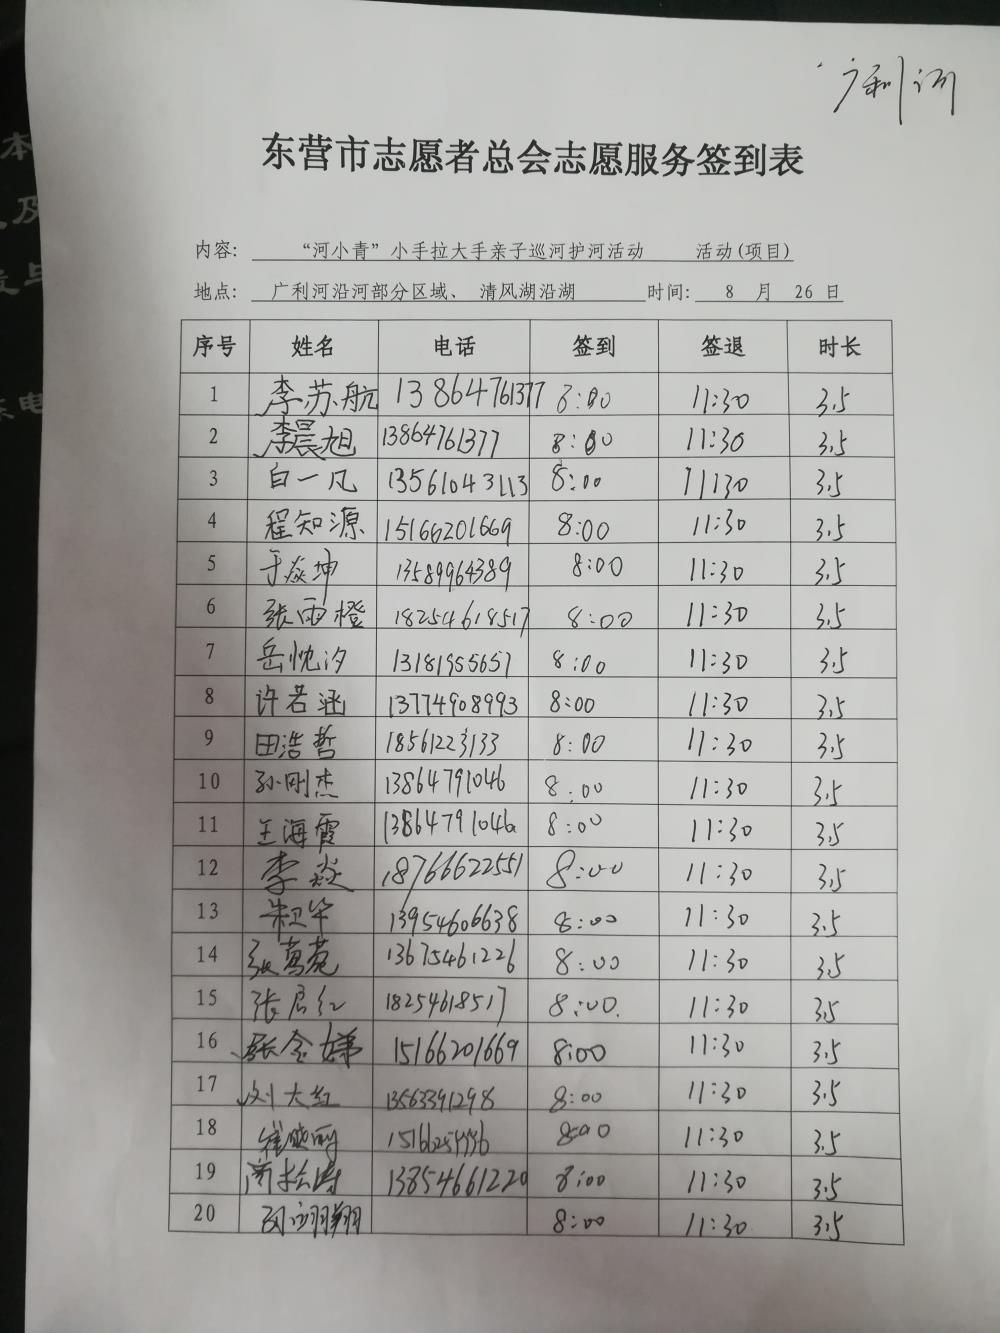 广利河
东营市志愿者总会志愿服务签到表
内容: “河小青”小手拉大手亲子巡河护河活动 活动(项目)
地点: 广利河沿河部分区域、 清风湖沿湖 时间: 8 月 26 日
序号 姓名 电话 签到 签退 时长
1 李苏航 13864761377 8:00 11:30 3.5
2 李晨旭 13864761377 8:00 11:30 3.5
3 白一凡 13561043113 8:00 11:30 3.5
4 程知源 15166201669 8:00 11:30 3.5
5 于焱坤 13589964389 8:00 11:30 3.5
6 张雨橙 18254618517 8:00 11:30 3.5
7 岳忱汐 13181955657 8:00 11:30 3.5
8 许若涵 13774908993 8:00 11:30 3.5
9 田浩哲 18561223133 8:00 11:30 3.5
10 孙刚杰 13864791046 8:00 11:30 3.5
11 王海霞 13864791046 8:00 11:30 3.5
12 李焱 18766622551 8:00 11:30 3.5
13 朱卫华 13954606638 8:00 11:30 3.5
14 张 13675461226 8:00 11:30 3.5
15 张启红 18254618517 8:00 11:30 3.5
16 张令娣 15166201669 8:00 11:30 3.5
17 刘大红 13563391298 8:00 11:30 3.5
18 崔晓丽 8:00 11:30 3.5
19 商松涛 13854661220 8:00 11:30 3.5
20 8:00 11:30 3.5
本
及
与
电